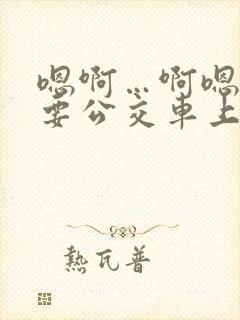 嗯啊…啊嗯
要公交车上
熱瓦普